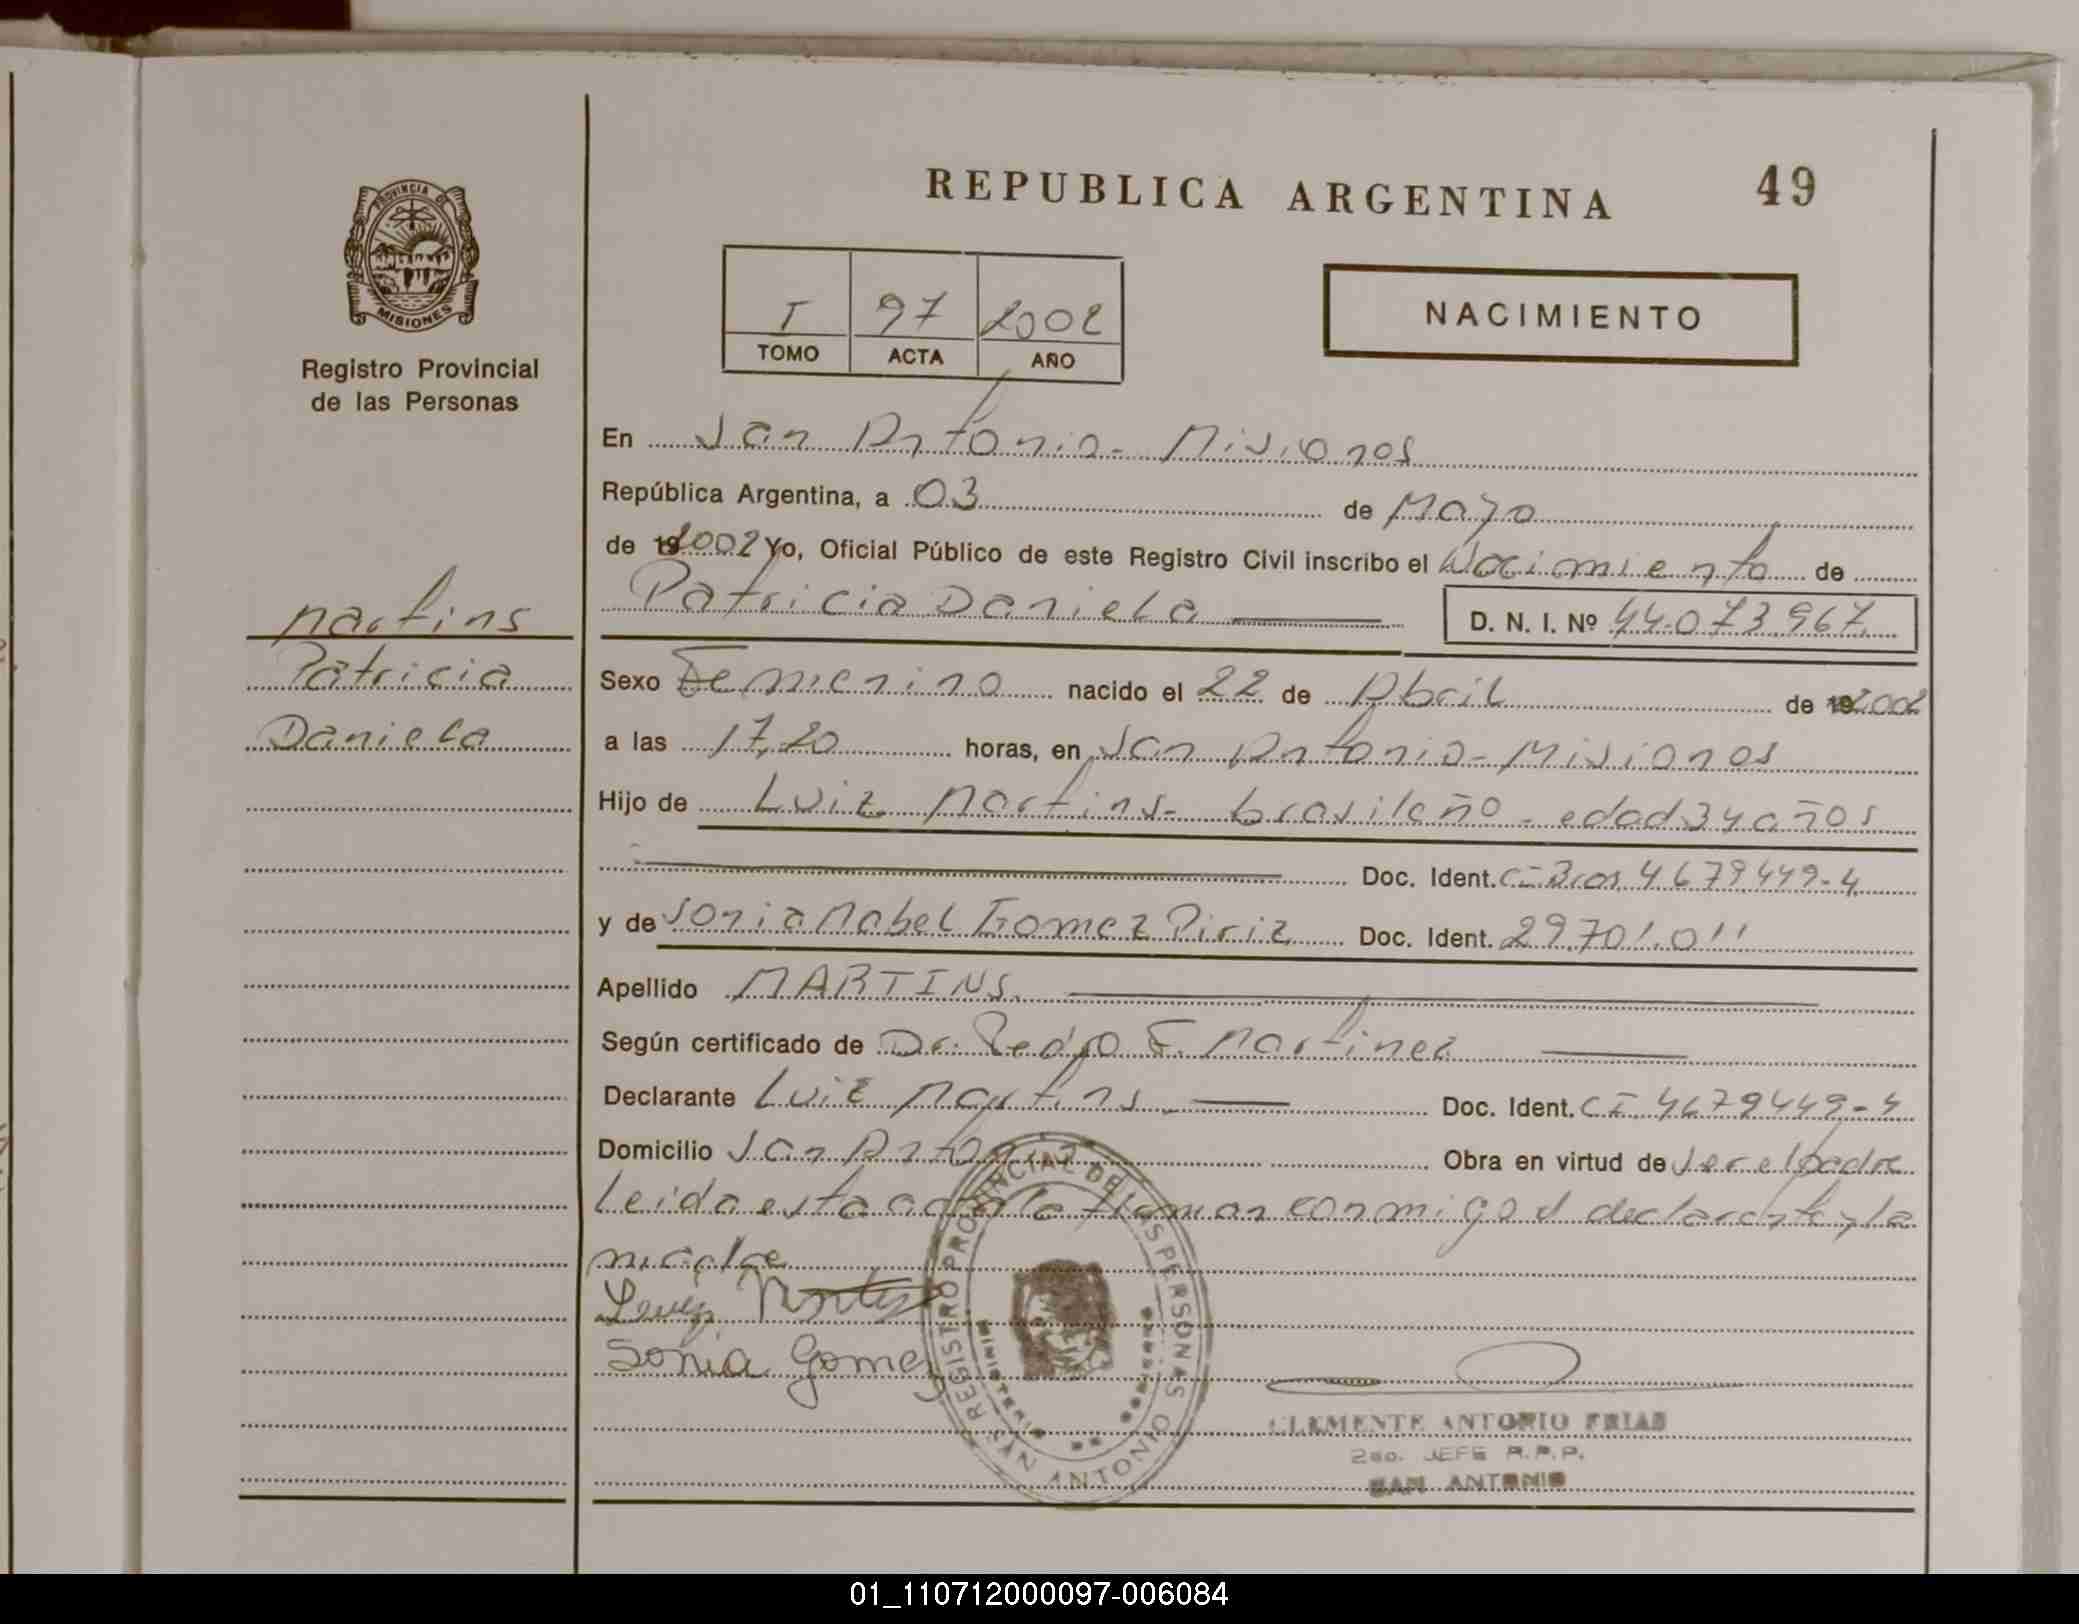 REPUBLICA ARGENTINA
49
PROVINCIA DE
MISIONES
Registro Provincial
de las Personas
I 97 2002
TOMO ACTA AÑO
NACIMIENTO
Martins
Patricia
Daniela
En San Antonio - Misiones
República Argentina, a 03 de Mayo
de 2002 Yo, Oficial Público de este Registro Civil inscribo el Nacimiento de
Patricia Daniela D. N. I. Nº 44.073.967
Sexo Femenino nacido el 22 de Abril de 2002
a las 17,20 horas, en San Antonio - Misiones
Hijo de Luiz Martins - brasileño - edad 34 años
Doc. Ident. CI Bras 4679449-4
y de Sonia Mabel Gomez Piriz Doc. Ident. 29.701.011
Apellido MARTINS
Según certificado de Dr. Pedro F. Martinez
Declarante Luiz Martins Doc. Ident. CI 4679449-4
Domicilio San Antonio Obra en virtud de ser el padre
Leida esta acta la firman conmigo el declarante y la
madre
Luiz Martins
Sonia Gomez
REGISTRO PROVINCIAL DE LAS PERSONAS
SAN ANTONIO
MINISTERIO
CLEMENTE ANTONIO FRIAS
2do. JEFE R.P.P.
SAN ANTONIO
01_110712000097-006084